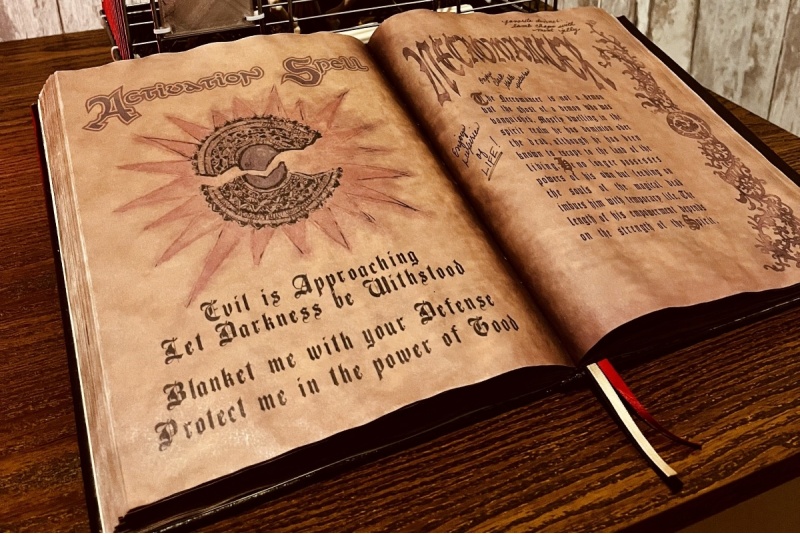 Activation Spell
Evil is Approaching
Let Darkness be Withstood
Blanket me with your Defense
Protect me in the power of Good
favorite dinner:
lamb chops with
mint jelly.
NECROMANCER
Enjoys
pleasures
of
LIFE!
The Necromancer is not a demon
but a ghost of a demon who was
vanquished. Mostly dwelling in the
spirit realm he has dominion over
the dead, although he has been
known to rise in the land of the
living. He no longer possesses
powers of his own but feeding on
the souls of the magical dead
imbues him with temporary life. The
length of his empowerment depends
on the strength of the Spirit.